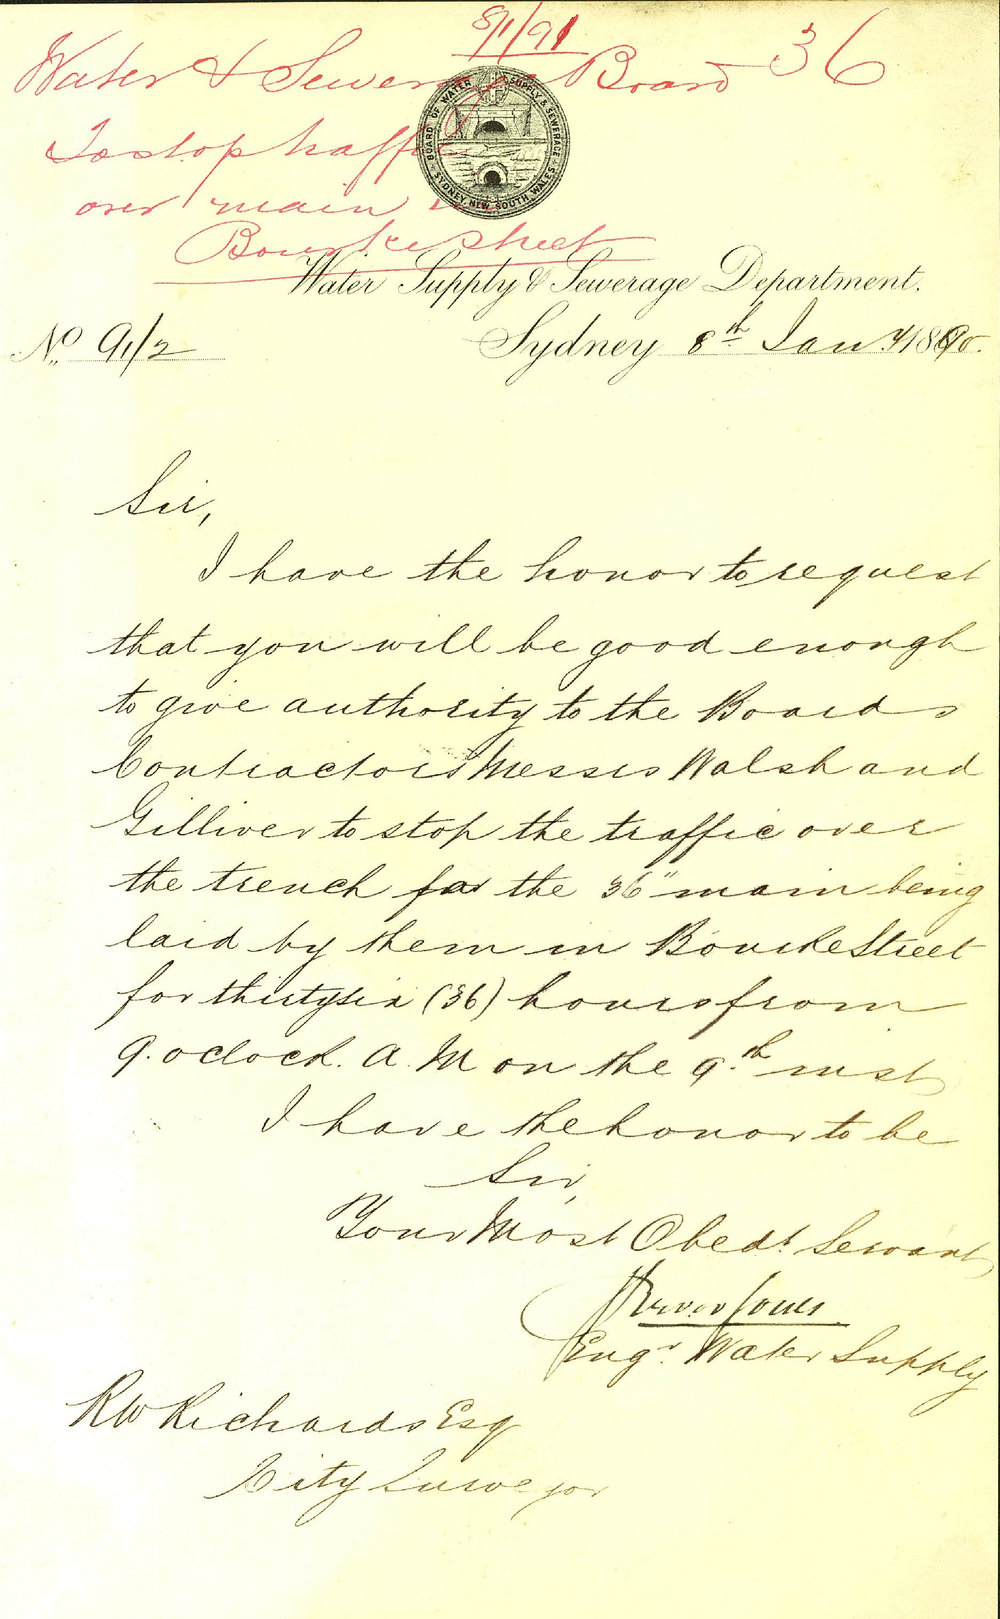 8/1/91
Water & Sewerage Board 36
To stop traffic
over main in
Bourke Street
BOARD OF WATER SUPPLY & SEWERAGE
SYDNEY, NEW SOUTH WALES
Water Supply & Sewerage Department.
No. 91/2
Sydney 8th Jany 1890.
Sir,
I have the honor to request
that you will be good enough
to give authority to the Boards
Contractors Messrs Walsh and
Gilliver to stop the traffic over
the trench for the 36" main being
laid by them in Bourke Street
for thirtysix (36) hours from
9. oclock. A. M on the 9th inst
I have the honor to be
Sir,
Your Most Obedt Servant
Trevor Jones
Engr. Water Supply
RW Richards Esq
City Surveyor